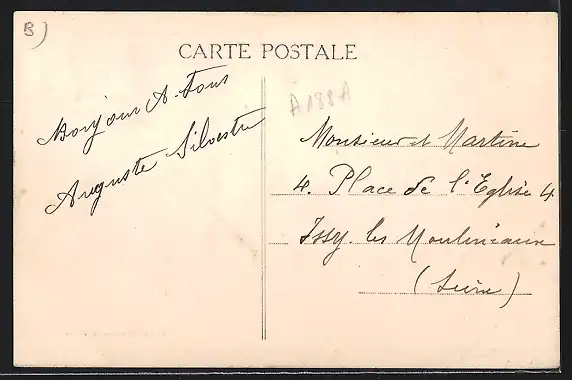 B)
CARTE POSTALE
A188A
Bonjour A. Tous
Auguste Silvestre
Monsieur et Martine
4. Place de l'Eglise 4
Issy. les Moulineaux
(Seine)